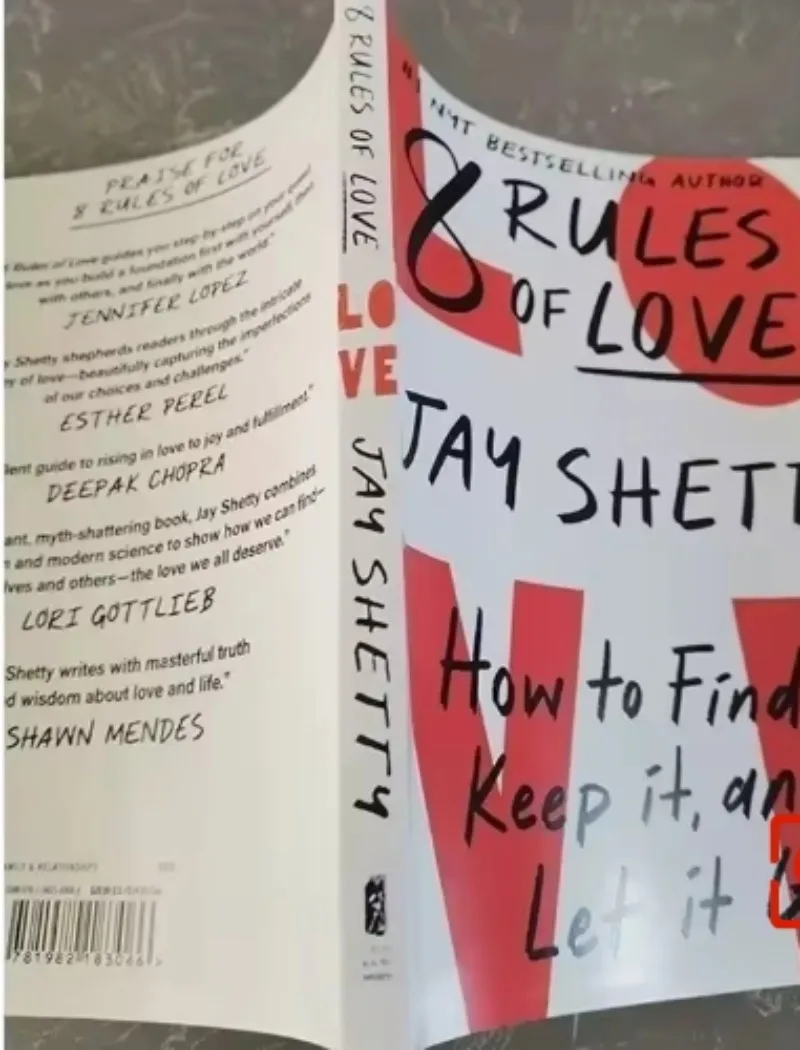 PRAISE FOR
8 RULES OF LOVE
Rules of Love guides you step-by-step on your
love as you build a foundation first with yourself, then
with others, and finally with the world."
JENNIFER LOPEZ
Shetty shepherds readers through the intricate
of love—beautifully capturing the imperfections
of our choices and challenges."
ESTHER PEREL
guide to rising in love to joy and fulfillment."
DEEPAK CHOPRA
myth-shattering book, Jay Shetty combines
and modern science to show how we can find—
and others—the love we all deserve."
LORI GOTTLIEB
Shetty writes with masterful truth
wisdom about love and life."
SHAWN MENDES
& RELATIONSHIPS
8 RULES OF LOVE
LO
VE
JAY SHETTY
#1 NYT BESTSELLING AUTHOR
8 RULES
OF LOVE
JAY SHETT
How to Find
Keep it, an
Let it